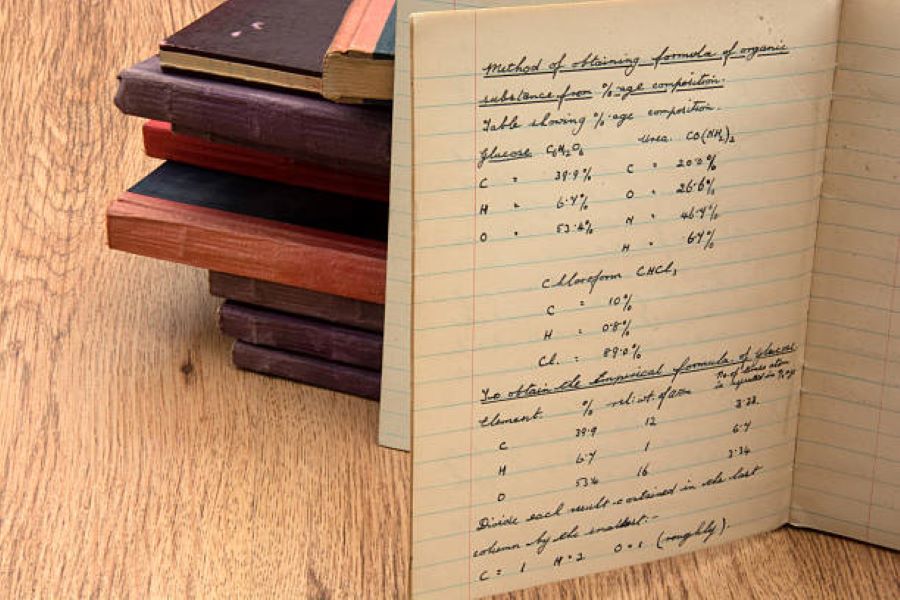 Method of obtaining formula of organic
substance from %age composition.
Table showing %age composition.
Glucose C₆H₁₂O₆ Urea. CO(NH₂)₂
C " 39.9% C " 20.0%
H " 6.7% O " 26.6%
O " 53.4% N " 46.7%
H " 6.7%
Chloroform CHCl₃
C : 10%
H : 0.8%
Cl. : 89.0%
To obtain the Empirical formula of glucose
No. of times atom
Element. % rel. wt. of atom is repeated in
C 39.9 12 3.32
H 6.7 1 6.7
O 53.4 16 3.34
Divide each result contained in the last
column by the smallest:-
C = 1 H = 2 O = 1 (roughly).